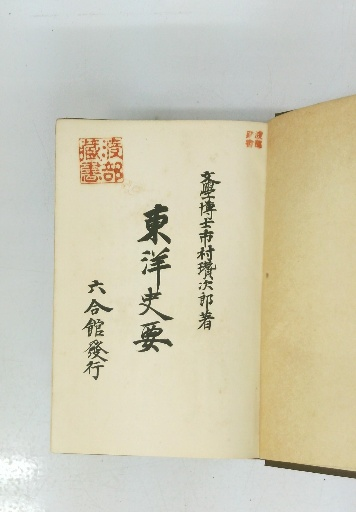 文學博士市村瓚次郎著
東洋史要
六合館發行
渡部
藏書